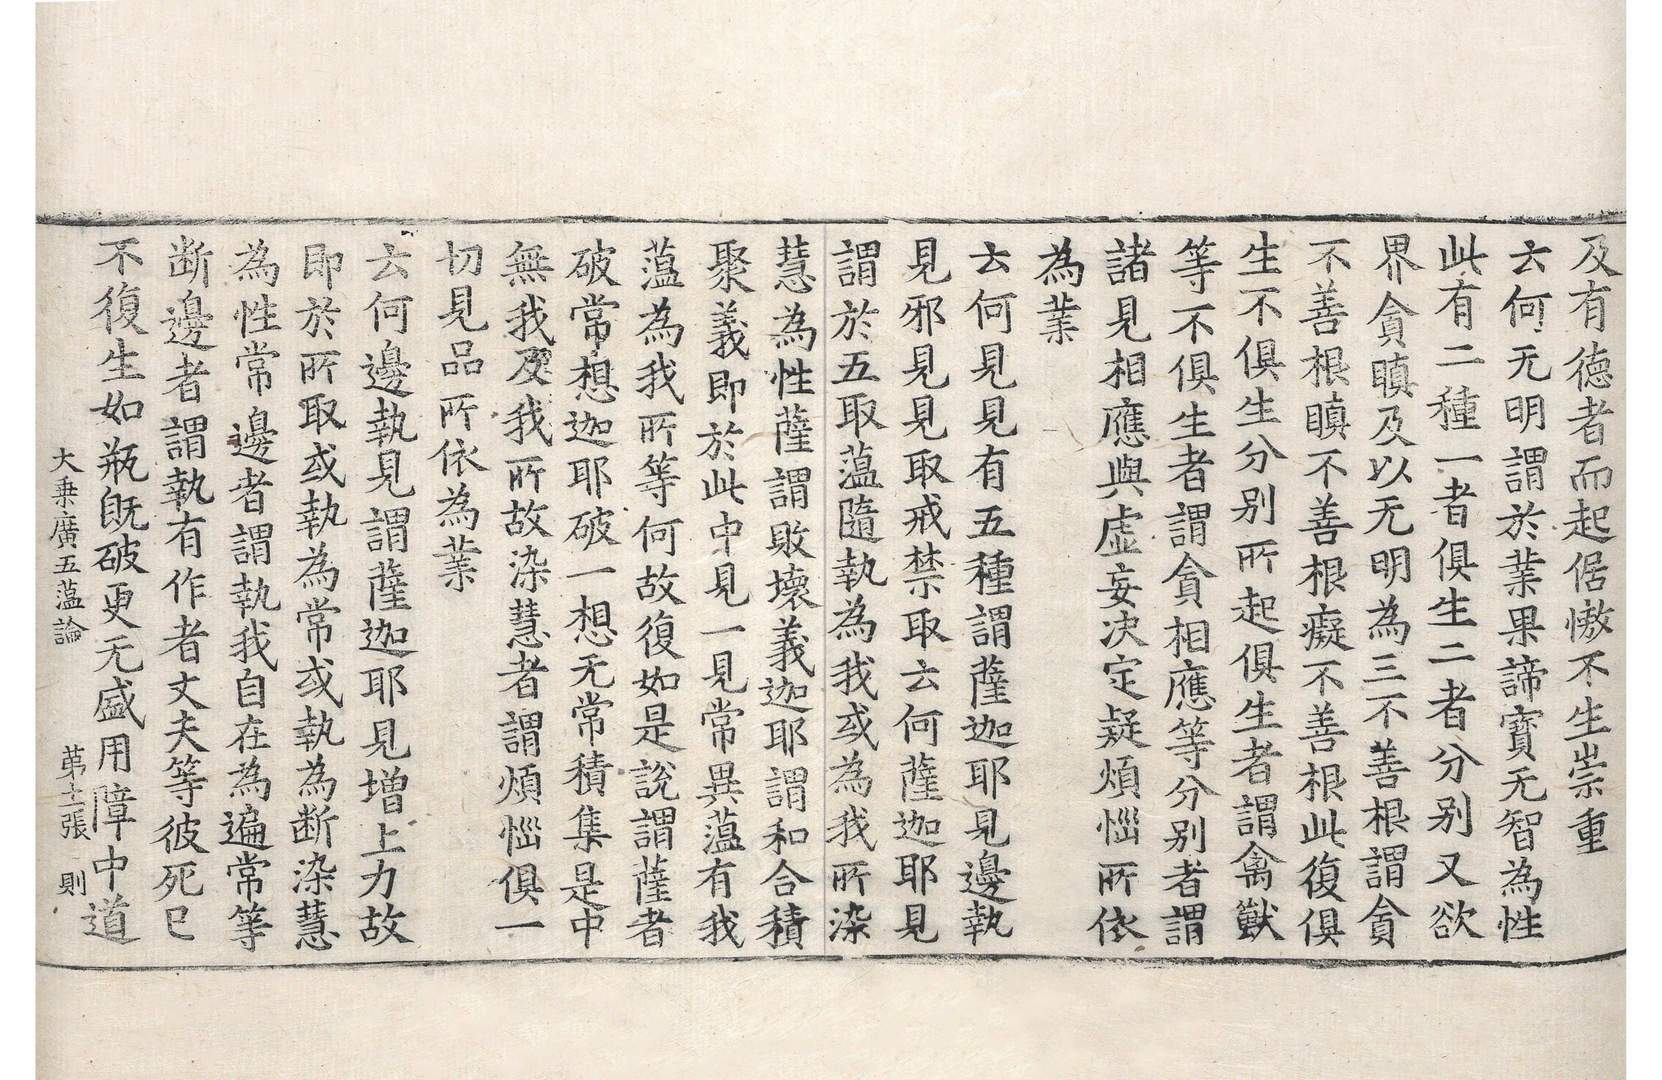 及有德者而起倨慠不生崇重
云何无明謂於業果諦寶无智為性
此有二種一者俱生二者分別又欲
界貪瞋及以无明為三不善根謂貪
不善根瞋不善根癡不善根此復俱
生不俱生分別所起俱生者謂禽獸
等不俱生者謂貪相應等分別者謂
諸見相應與虛妄決定疑煩惱所依
為業
云何見見有五種謂薩迦耶見邊執
見邪見見取戒禁取云何薩迦耶見
謂於五取蘊隨執為我或為我所染
慧為性薩謂敗壞義迦耶謂和合積
聚義即於此中見一見常異蘊有我
蘊為我所等何故復如是說謂薩者
破常想迦耶破一想无常積集是中
無我及我所故染慧者謂煩惱俱一
切見品所依為業
云何邊執見謂薩迦耶見增上力故
即於所取或執為常或執為斷染慧
為性常邊者謂執我自在為遍常等
斷邊者謂執有作者丈夫等彼死已
不復生如瓶既破更无盛用障中道
大乘廣五蘊論 第十張 則